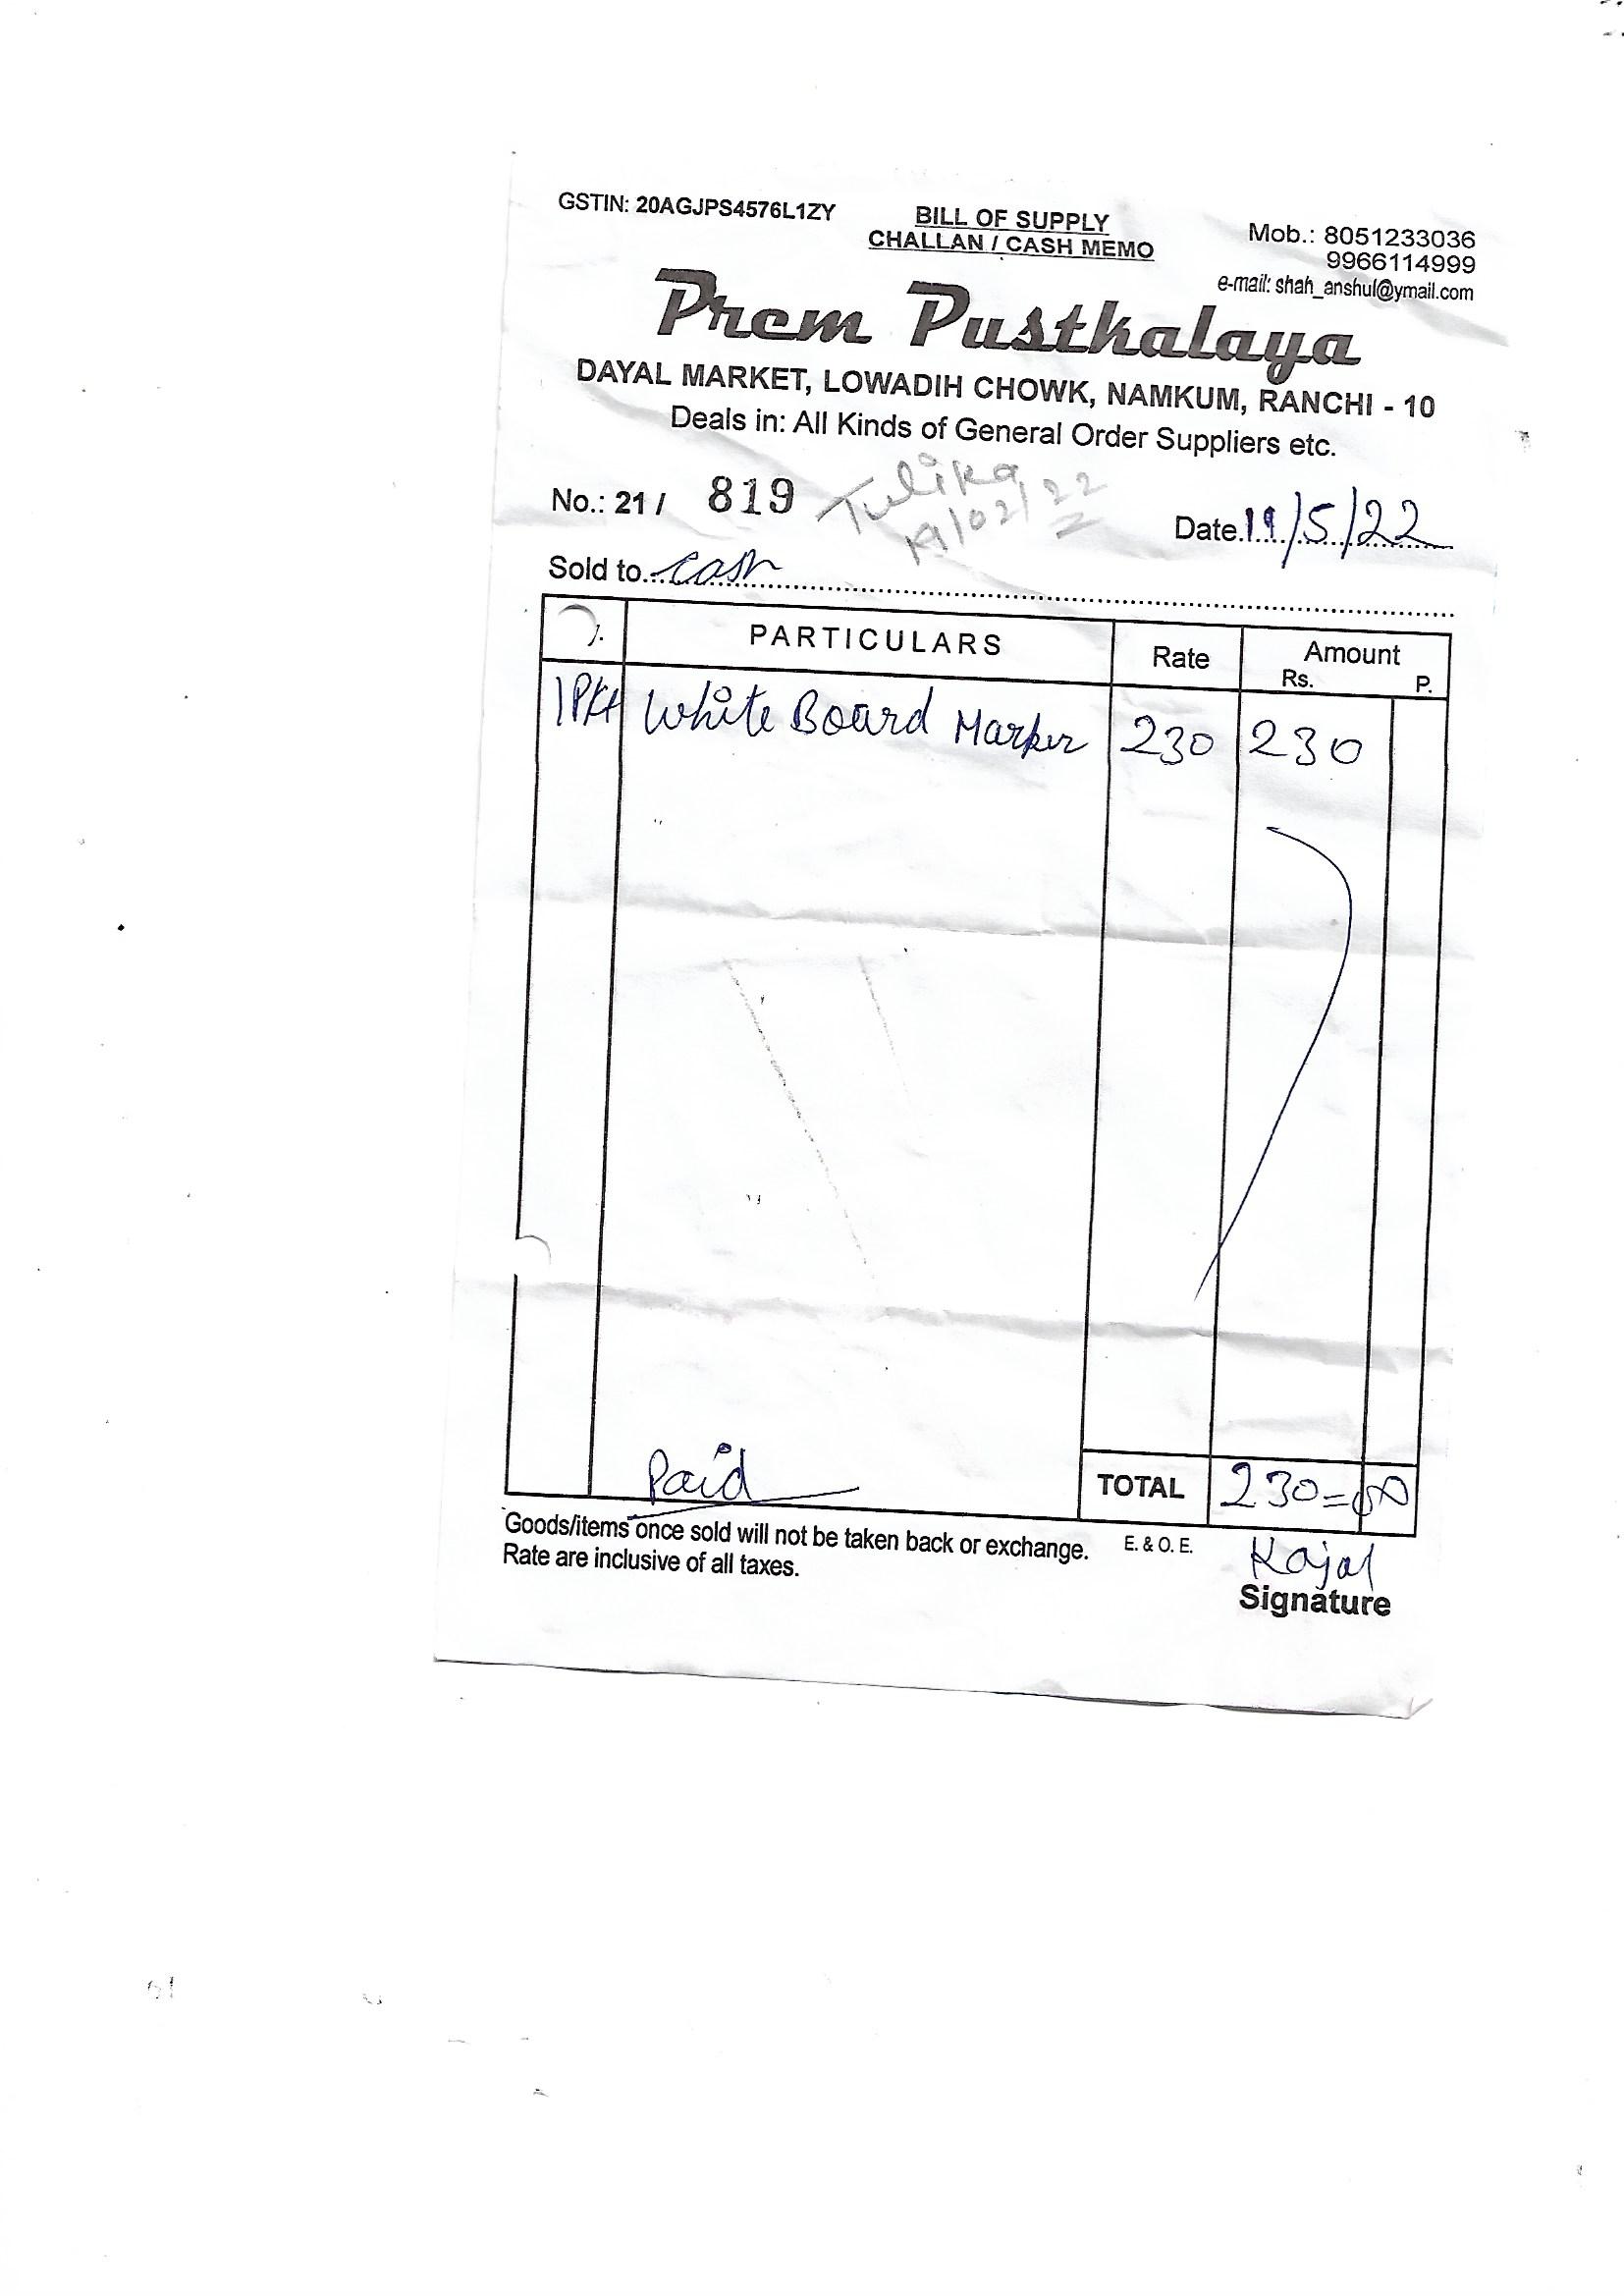 GSTIN: 20AGJPS4576L1ZY
BILL OF SUPPLY
CHALLAN / CASH MEMO
Mob.: 8051233036
9966114999
e-mail: shah_anshul@ymail.com
Prem Pusthalaya
DAYAL MARKET, LOWADIH CHOWK, NAMKUM, RANCHI - 10
Deals in: All Kinds of General Order Suppliers etc.
No.: 21 / 819
Tulika
19/02/22
Date 19/5/22
Sold to cash
PARTICULARS Rate Amount
Rs. P.
1 Pkt White Board Marker 230 230
Paid
TOTAL 230=00
Goods/items once sold will not be taken back or exchange. E. & O. E.
Rate are inclusive of all taxes.
Kajal
Signature